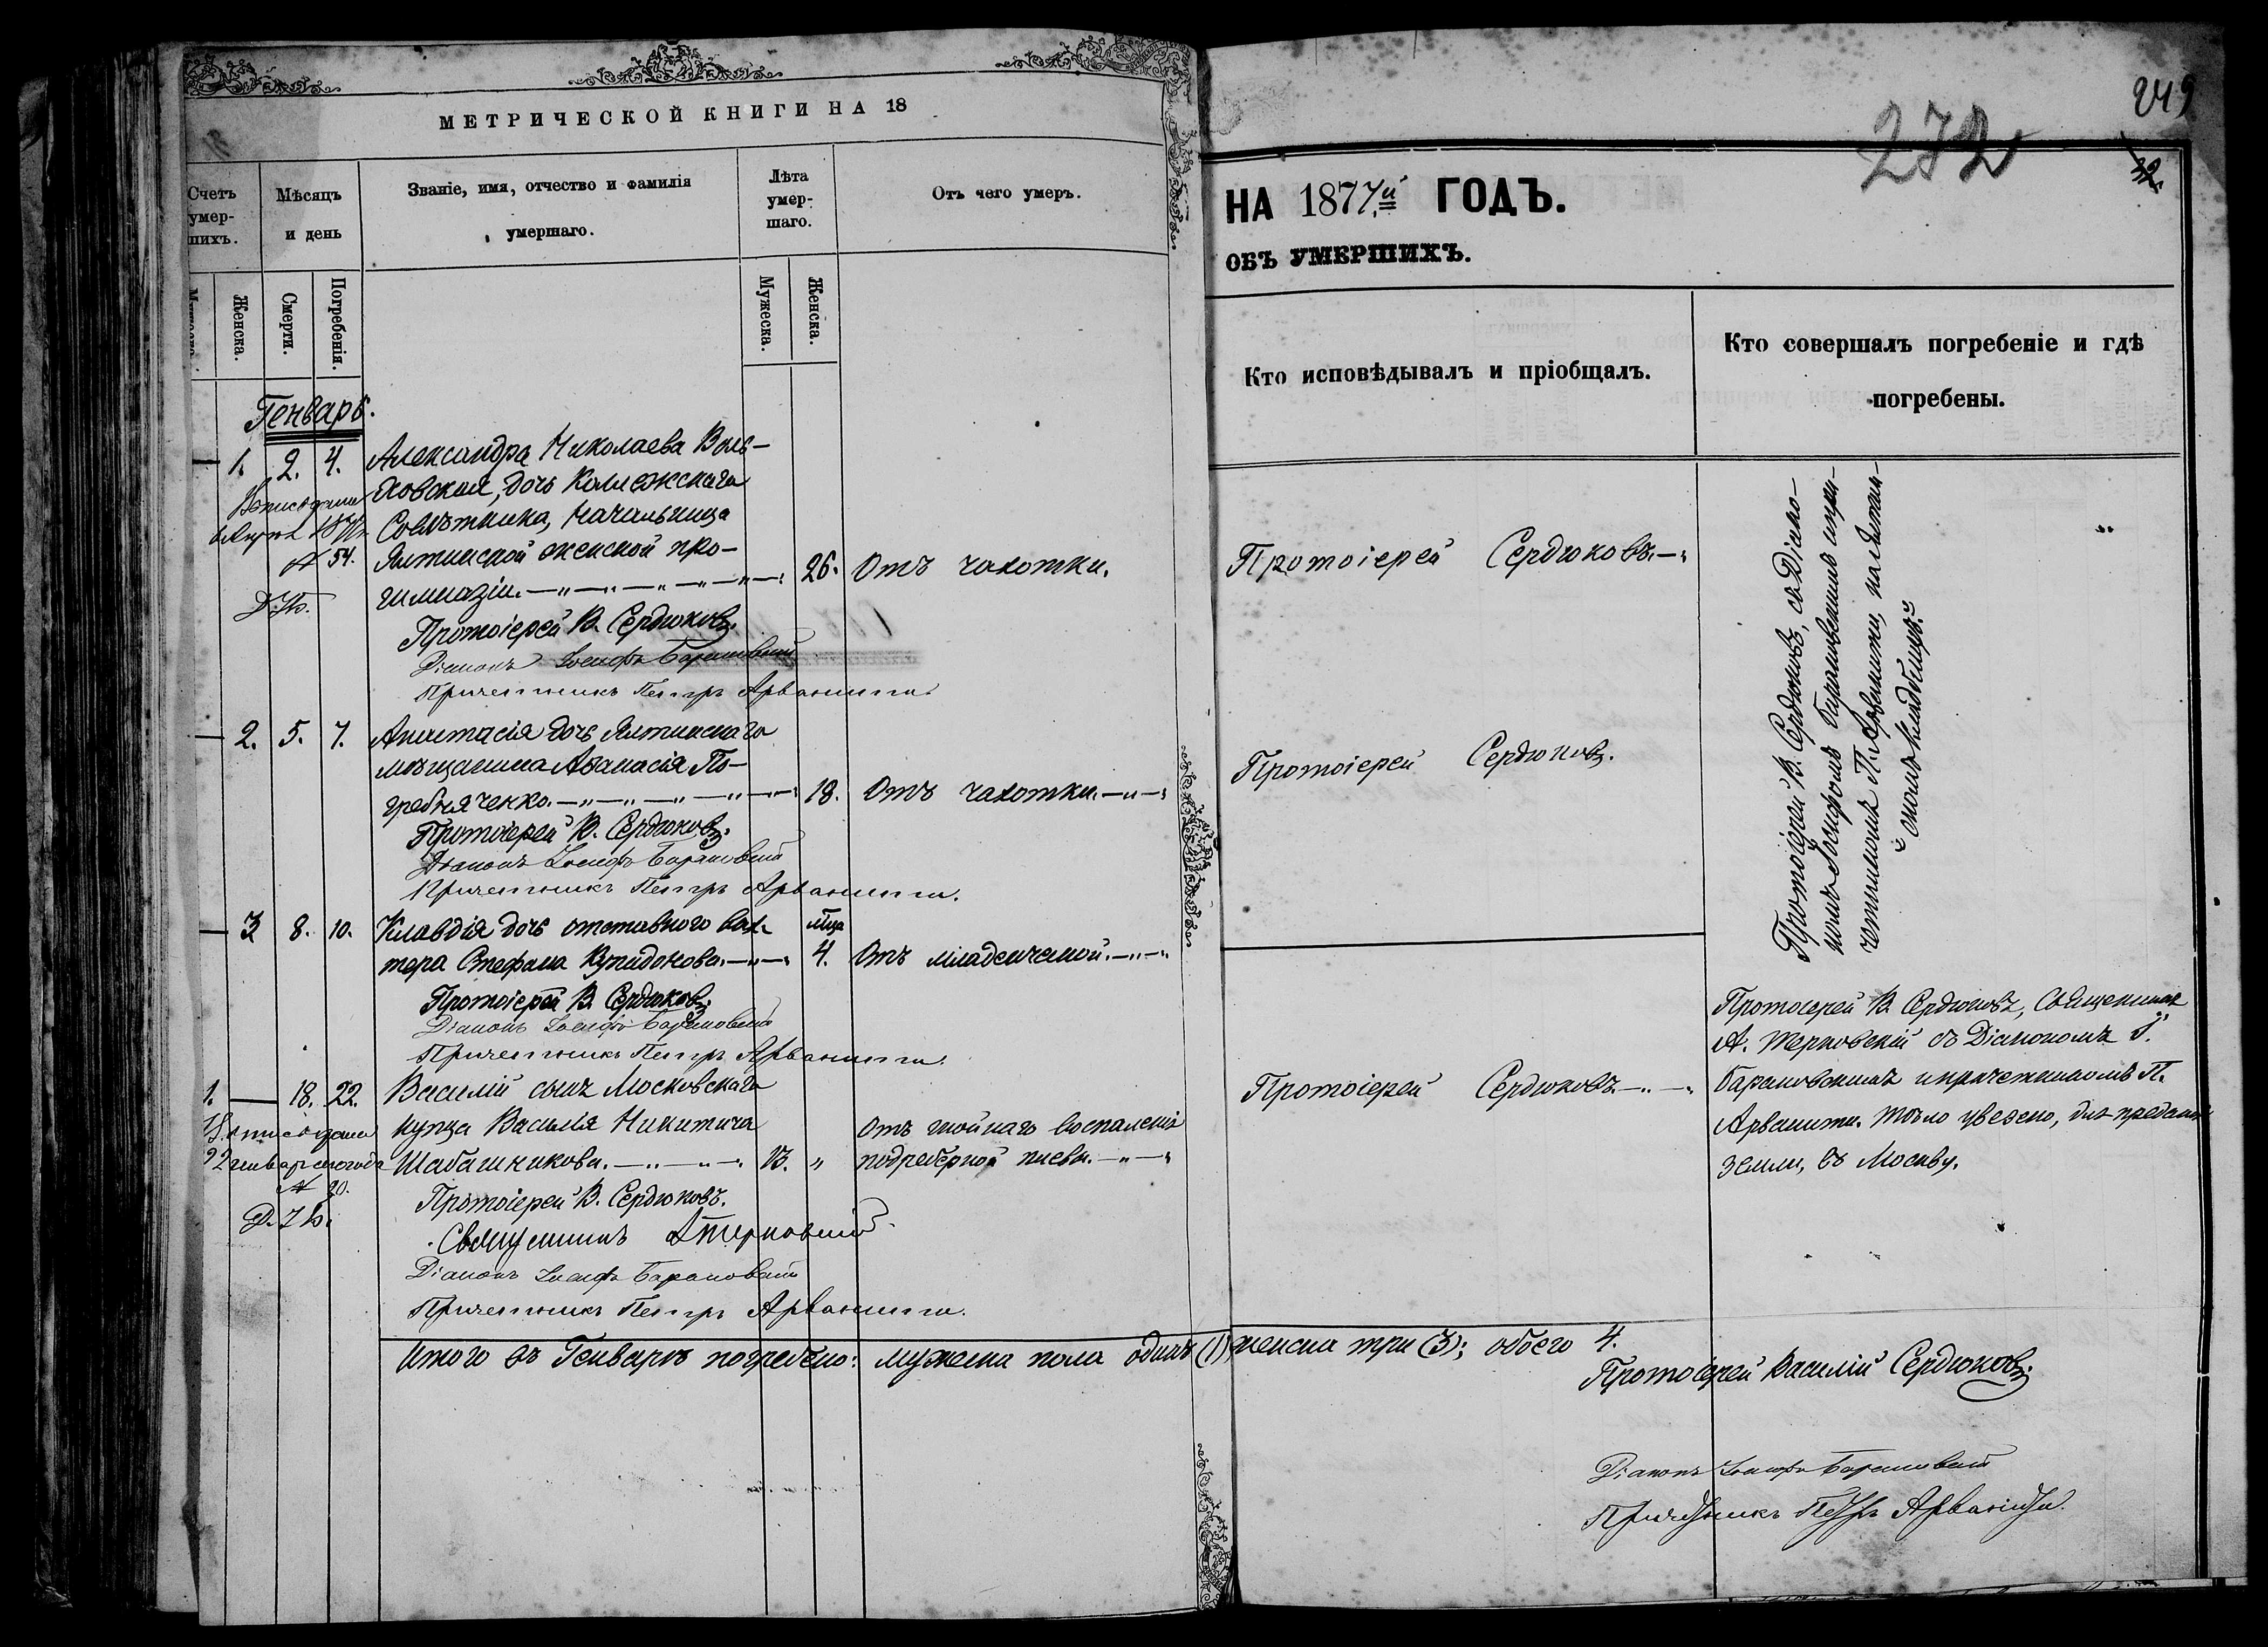 МЕТРИЧЕСКОЙ КНИГИ НА 18
Счетъ умер-шихъ.
Мѣсяцъ и день
Званіе, имя, отчество и фамилія умершаго.
Лѣта умер-шаго.
Отъ чего умеръ.
Женска.
Смерти.
Погребенія.
Мужеска.
Женска.
Генварь.
— 1. 2. 4. Александра Николаева Воль-
ховская, дочь Коллежскаго
Совѣтника, Начальница
Ялтинской женской про-
гимназіи. 26. Отъ чахотки.
№ 54.
Протоіерей В. Сердюковъ.
Діаконъ Іосифъ Барановскій
Причетникъ Петръ Арванити.
— 2. 5. 7. Анастасія дочь Ялтинскаго
мѣщанина Аѳанасія По-
гребняченко. 18. Отъ чахотки.
Протоіерей В. Сердюковъ.
Діаконъ Іосифъ Барановскій
Причетникъ Петръ Арванити.
— 3 8. 10. Клавдія дочь отставного вах- мца
тера Стефана Купидонова. 4. Отъ младенческой.
Протоіерей В. Сердюковъ.
Діаконъ Іосифъ Барановскій
Причетникъ Петръ Арванити.
1. — 18. 22. Василій сынъ Московскаго
купца Василія Никитича Отъ гнойнаго воспаленія
Шабашникова. 13. „ подреберной плевы.
№ 20.
Протоіерей В. Сердюковъ.
Священникъ А Терновскій
Діаконъ Іосифъ Барановскій
Причетникъ Петръ Арванити.
Итого въ Генварѣ погребено: мужеска пола одинъ (1), женска три (3); обоего 4.
249
272
32.
НА 1877.й ГОДЪ.
ОБЪ УМЕРШИХЪ.
Кто исповѣдывалъ и пріобщалъ.
Кто совершалъ погребеніе и гдѣ погребены.
Протоіерей Сердюковъ.
Протоіерей Сердюковъ.
Протоіерей В. Сердюковъ, съ Діако-
номъ Іосифомъ Барановскимъ и при-
четникомъ П. Арванити, на Ялтин-
скомъ кладбищѣ.
Протоіерей Сердюковъ.
Протоіерей В. Сердюковъ, Священникъ
А. Терновскій съ Діакономъ І.
Барановскимъ и причетникомъ П.
Арванити. Тѣло увезено, для преданія
земли, въ Москву.
Протоіерей Василій Сердюковъ.
Діаконъ Іосифъ Барановскій
Причетникъ Петръ Арванити.